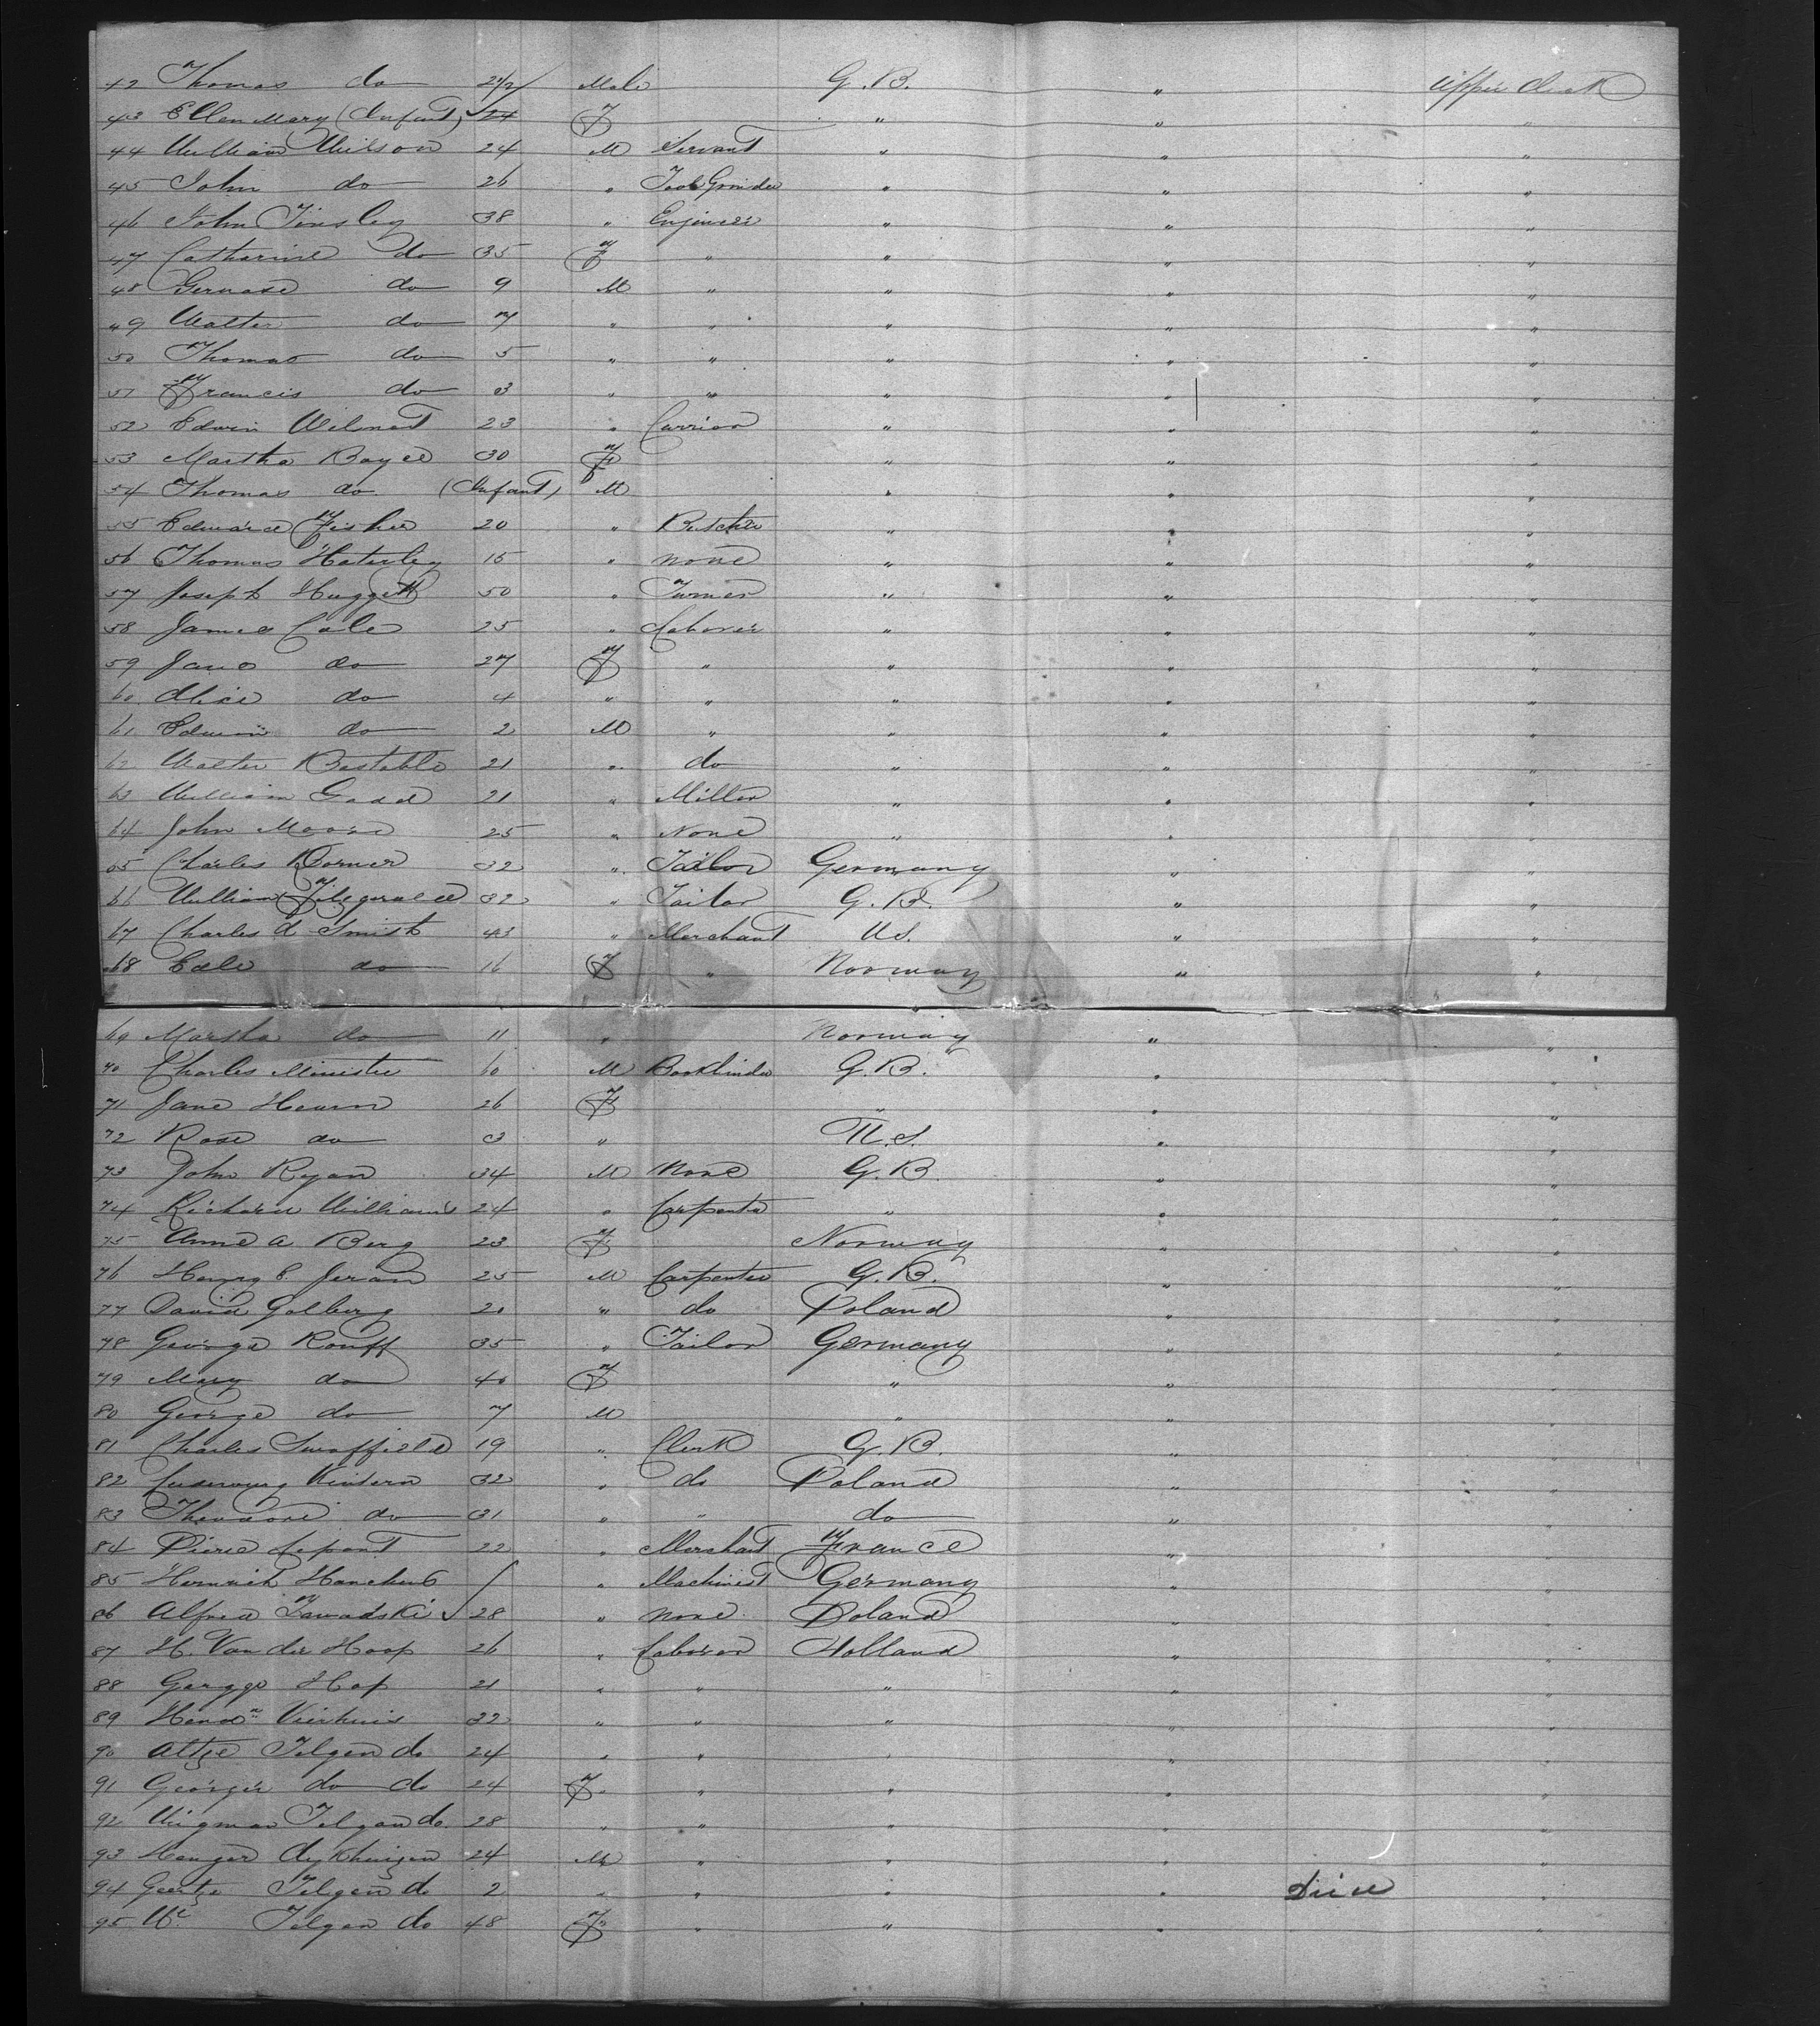 42 Thomas do 2 1/2 Male G.B. " Upper deck
43 Ellen Mary (Infant) 24 F " " "
44 William Wilson 24 M Servant " " "
45 John do 26 " Tool Grinder " " "
46 John Tinsley 38 " Engineer " " "
47 Catharine do 35 F " " " "
48 Gervase do 9 M " " " "
49 Walter do 7 " " " " "
50 Thomas do 5 " " " " "
51 Francis do 3 " " " " "
52 Edwin 23 " Currier " " "
53 Martha Boyce 30 F " " "
54 Thomas do (Infant) M " " "
55 Edward Fisher 20 " Butcher " " "
56 Thomas Haterley 15 " none " " "
57 Joseph Huggett 50 " Turner " " "
58 James Cole 25 " Laborer " " "
59 Jane do 27 F " " " "
60 Alice do 4 " " " " "
61 Edwin do 2 M " " " "
62 Walter Bastable 21 " do " " "
63 William Gadd 21 " Miller " " "
64 John Moore 25 " None " " "
65 Charles Dorner 32 " Tailor Germany " "
66 William 32 " Tailor G.B. " "
67 Charles A Smith 43 " Merchant U.S. " "
68 do 16 F " Norway " "
69 Martha do 11 " Norway " "
70 Charles Minister 60 M Bookbinder G.B. " "
71 Jane Hearn 26 F " " "
72 Rose do 3 " U.S. " "
73 John Ryan 34 M None G.B. " "
74 Richard Williams 24 " Carpenter " " "
75 Anne A Berg 23 F Norway " "
76 25 M Carpenter G.B. " "
77 David Golberg 21 " do Poland " "
78 George Rouff 35 " Tailor Germany " "
79 Mary do 40 F " " "
80 George do 7 M " " "
81 Charles Swaffield 19 " Clerk G.B. " "
82 32 " do Poland " "
83 Theodore do 31 " " do " "
84 Pierre Lepont 22 " Merchant France " "
85 / " Machinist Germany " "
86 Alfred Zawadski ✓ 28 " none Poland " "
87 H. Van der Hoop 26 " Laborer Holland " "
88 Hop 21 " " " " "
89 32 " " " " "
90 Altje Tilgen do 24 " " " " "
91 do do 24 F " " " "
92 Tilgen do 28 " " " " "
93 24 M " " " "
94 Geertje Tilgen do 2 " " " " Died "
95 Tilgen do 48 F " " " "